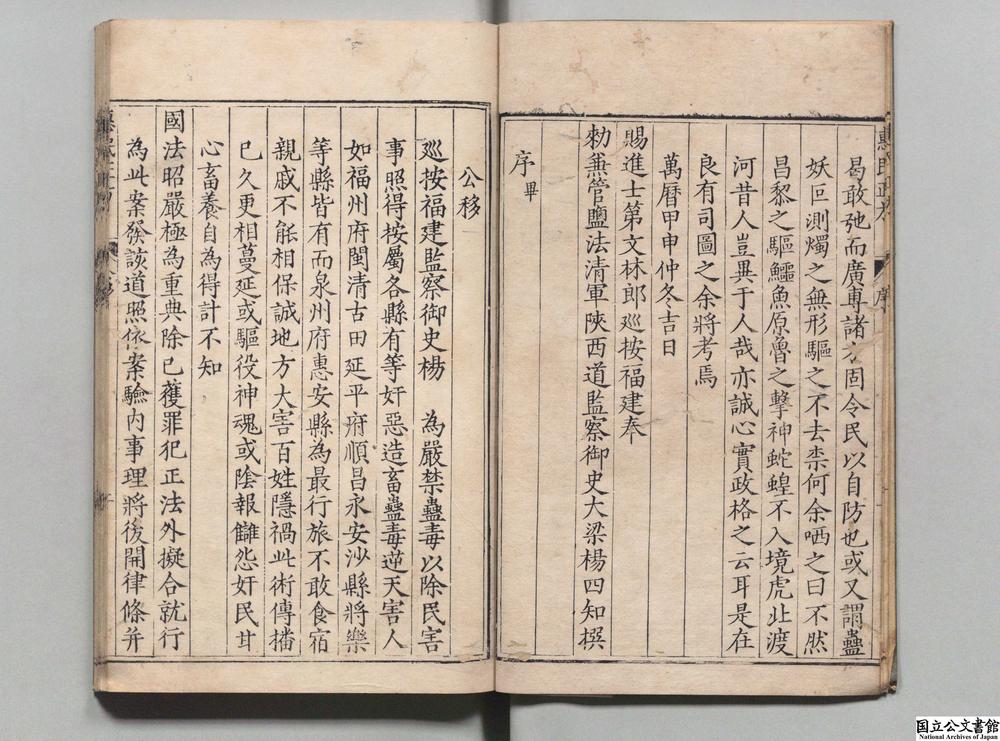 曷敢弛而廣専諸方固令民以自防也或又謂蠱
妖叵測燭之無形驅之不去柰何余哂之曰不然
昌黎之驅鱷魚原魯之擊神蛇蝗不入境虎北渡
河昔人豈異于人哉亦誠心實政格之云耳是在
良有司圖之余將考焉
萬曆甲申仲冬吉日
賜進士第文林郎巡按福建奉
勑兼管鹽法清軍陝西道監察御史大梁楊四知撰
序畢
公移
巡按福建監察御史楊　為嚴禁蠱毒以除民害
事照得按屬各縣有等奸惡造畜蠱毒逆天害人
如福州府閩清古田延平府順昌永安沙縣將樂
等縣皆有而泉州府惠安縣為最行旅不敢食宿
親戚不能相保誠地方大害百姓隱禍此術傳播
已久更相蔓延或驅役神魂或陰報讎怨奸民甘
心畜養自為得計不知
國法昭嚴極為重典除已獲罪犯正法外擬合就行
為此案發該道照依案驗内事理將後開律條并
国立公文書館
National Archives of Japan